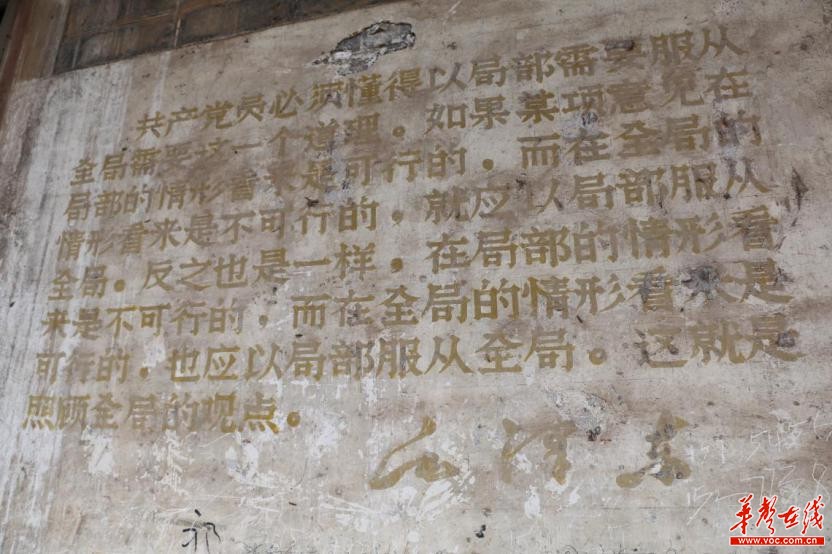 共产党员必须懂得以局部需要服从
全局需要这一个道理。如果某项意见在
局部的情形看来是可行的，而在全局的
情形看来是不可行的，就应以局部服从
全局。反之也是一样，在局部的情形看
来是不可行的，而在全局的情形看来是
可行的，也应以局部服从全局。这就是
照顾全局的观点。
毛泽东
华声在线
www.voc.com.cn